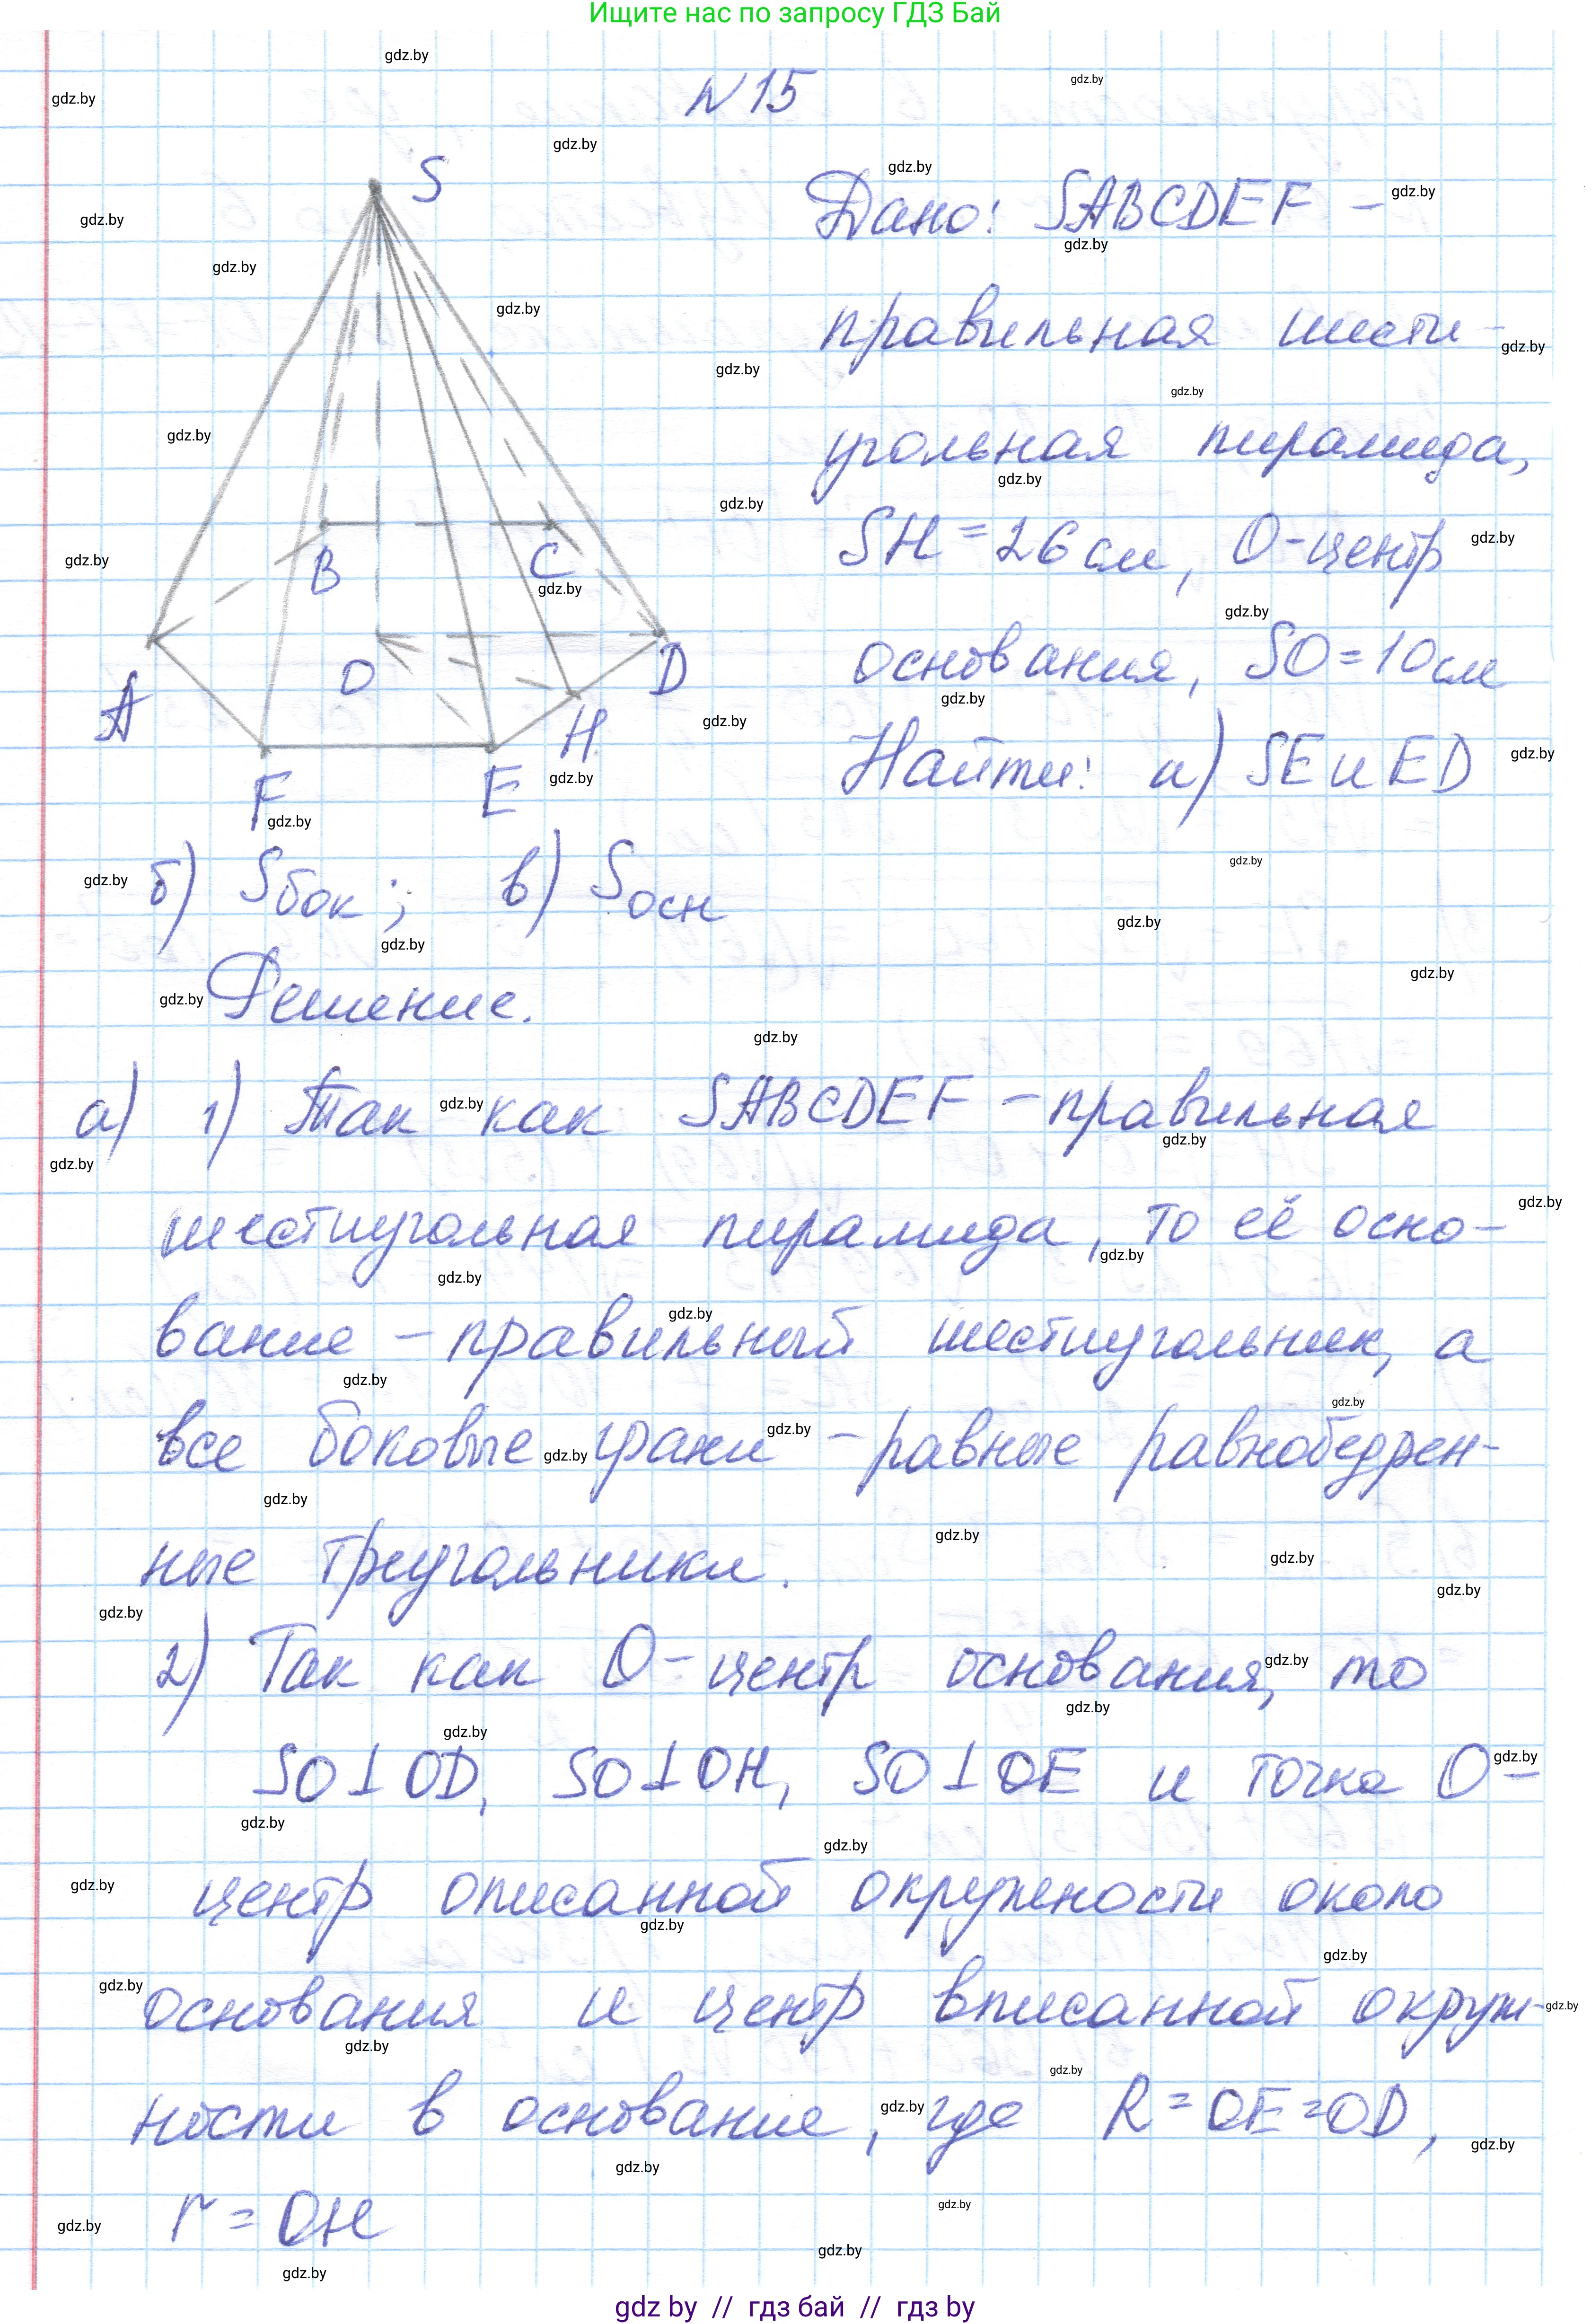 Ищите нас по запросу ГДЗ Бай
N 15
S
Дано: SABCDEF –
правильная шести-
угольная пирамида,
SH = 26 см, O – центр
основания, SO = 10 см
Найти: а) SE и ED
B
C
A
O
D
H
F
E
б) Sбок; в) Sосн
Решение.
а) 1) Так как SABCDEF – правильная
шестиугольная пирамида, то её осно-
вание – правильный шестиугольник, а
все боковые грани – равные равнобедрен-
ные треугольники.
2) Так как O – центр основания, то
SO ⊥ OD, SO ⊥ OH, SO ⊥ OE и точка O –
центр описанной окружности около
основания и центр вписанной окруж-
ности в основание, где R = OE = OD,
r = OH
gdz by // гдз бай // гдз by